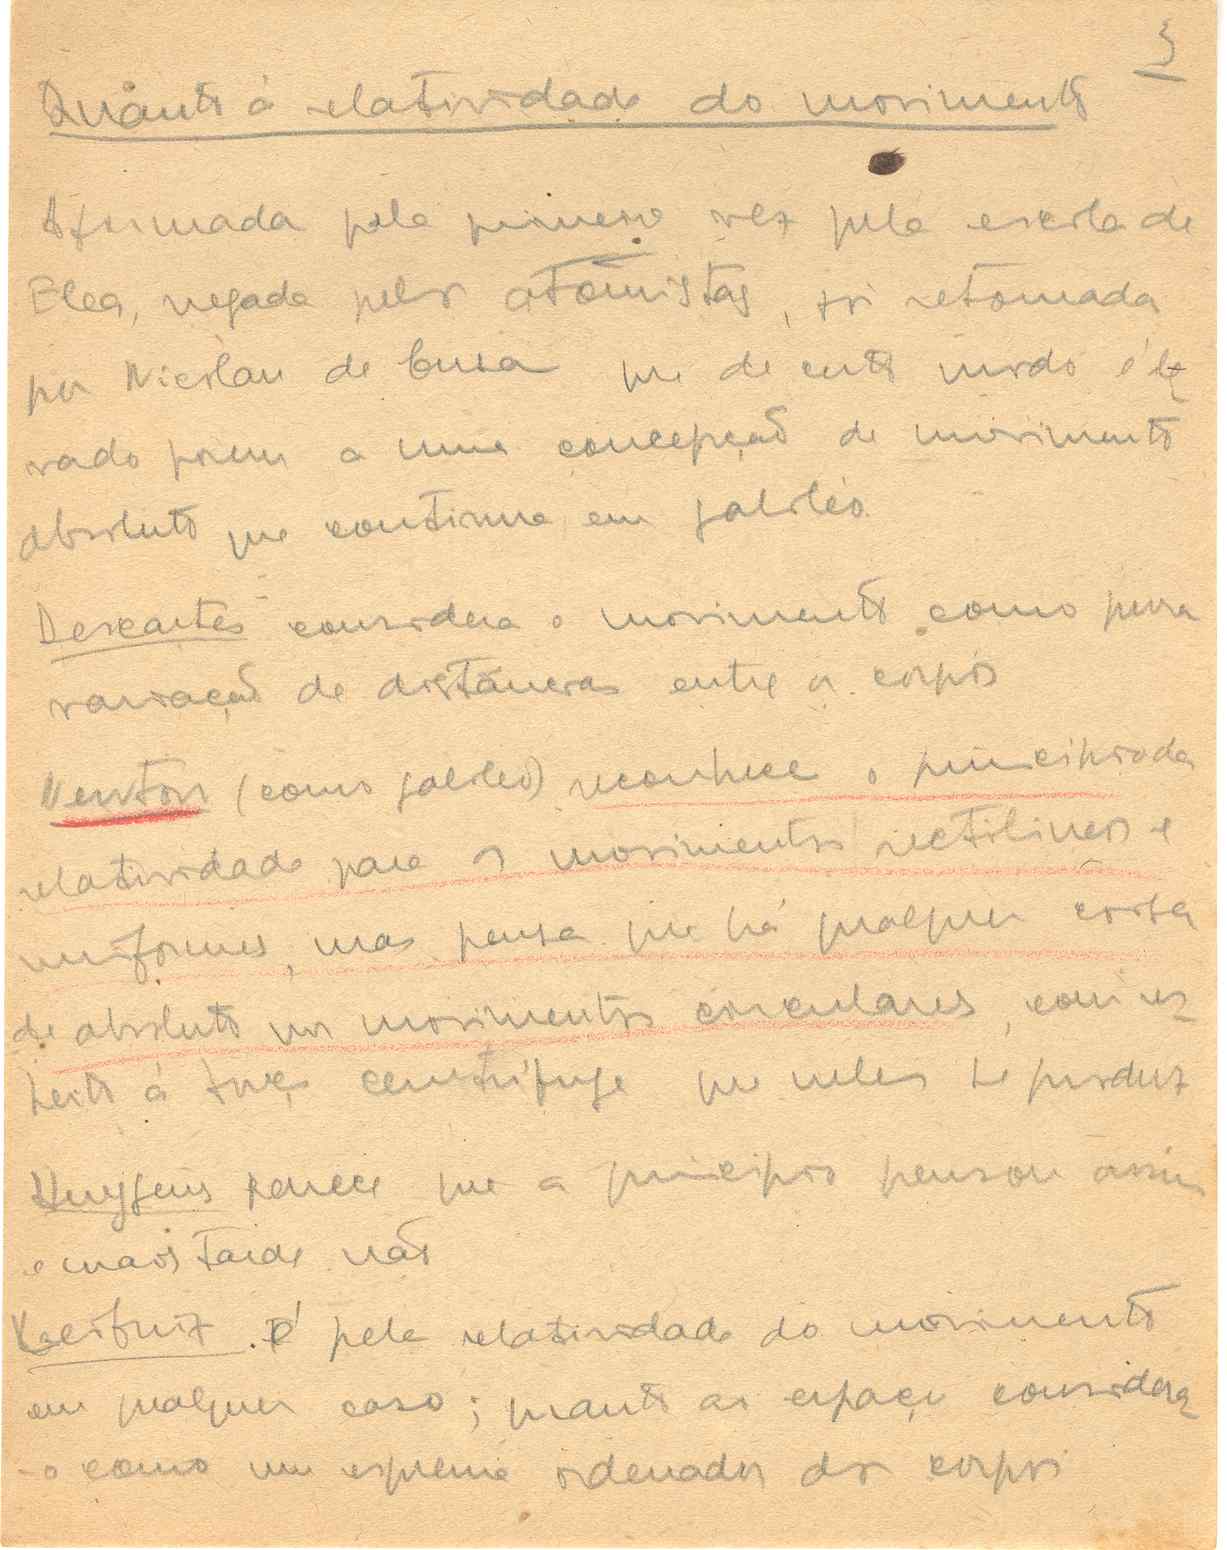 3
Quanto á relatividade do movimento
Afirmada pela primeira vez pela escola de
Elea, negada pelos atomistas, foi retomada
por Nicolau de Cusa que de certo modo é le
vado porem a uma concepção de movimento
absoluto que continua em Galileo
Descartes considera o movimento como pura
variação de distancias entre os corpos
Newton (como Galileo) reconhece o principio da
relatividade para os movimentos rectilineos e
uniformes, mas pensa que há qualquer coisa
de absoluto nos movimentos circulares, com res
peito á força centrífuga que neles se produz
Huygens parece que a principio pensou assim
e mais tarde não
Leibniz. É pela relatividade do movimento
em qualquer caso; quanto ao espaço considera
-o como um esquema ordenador dos corpos